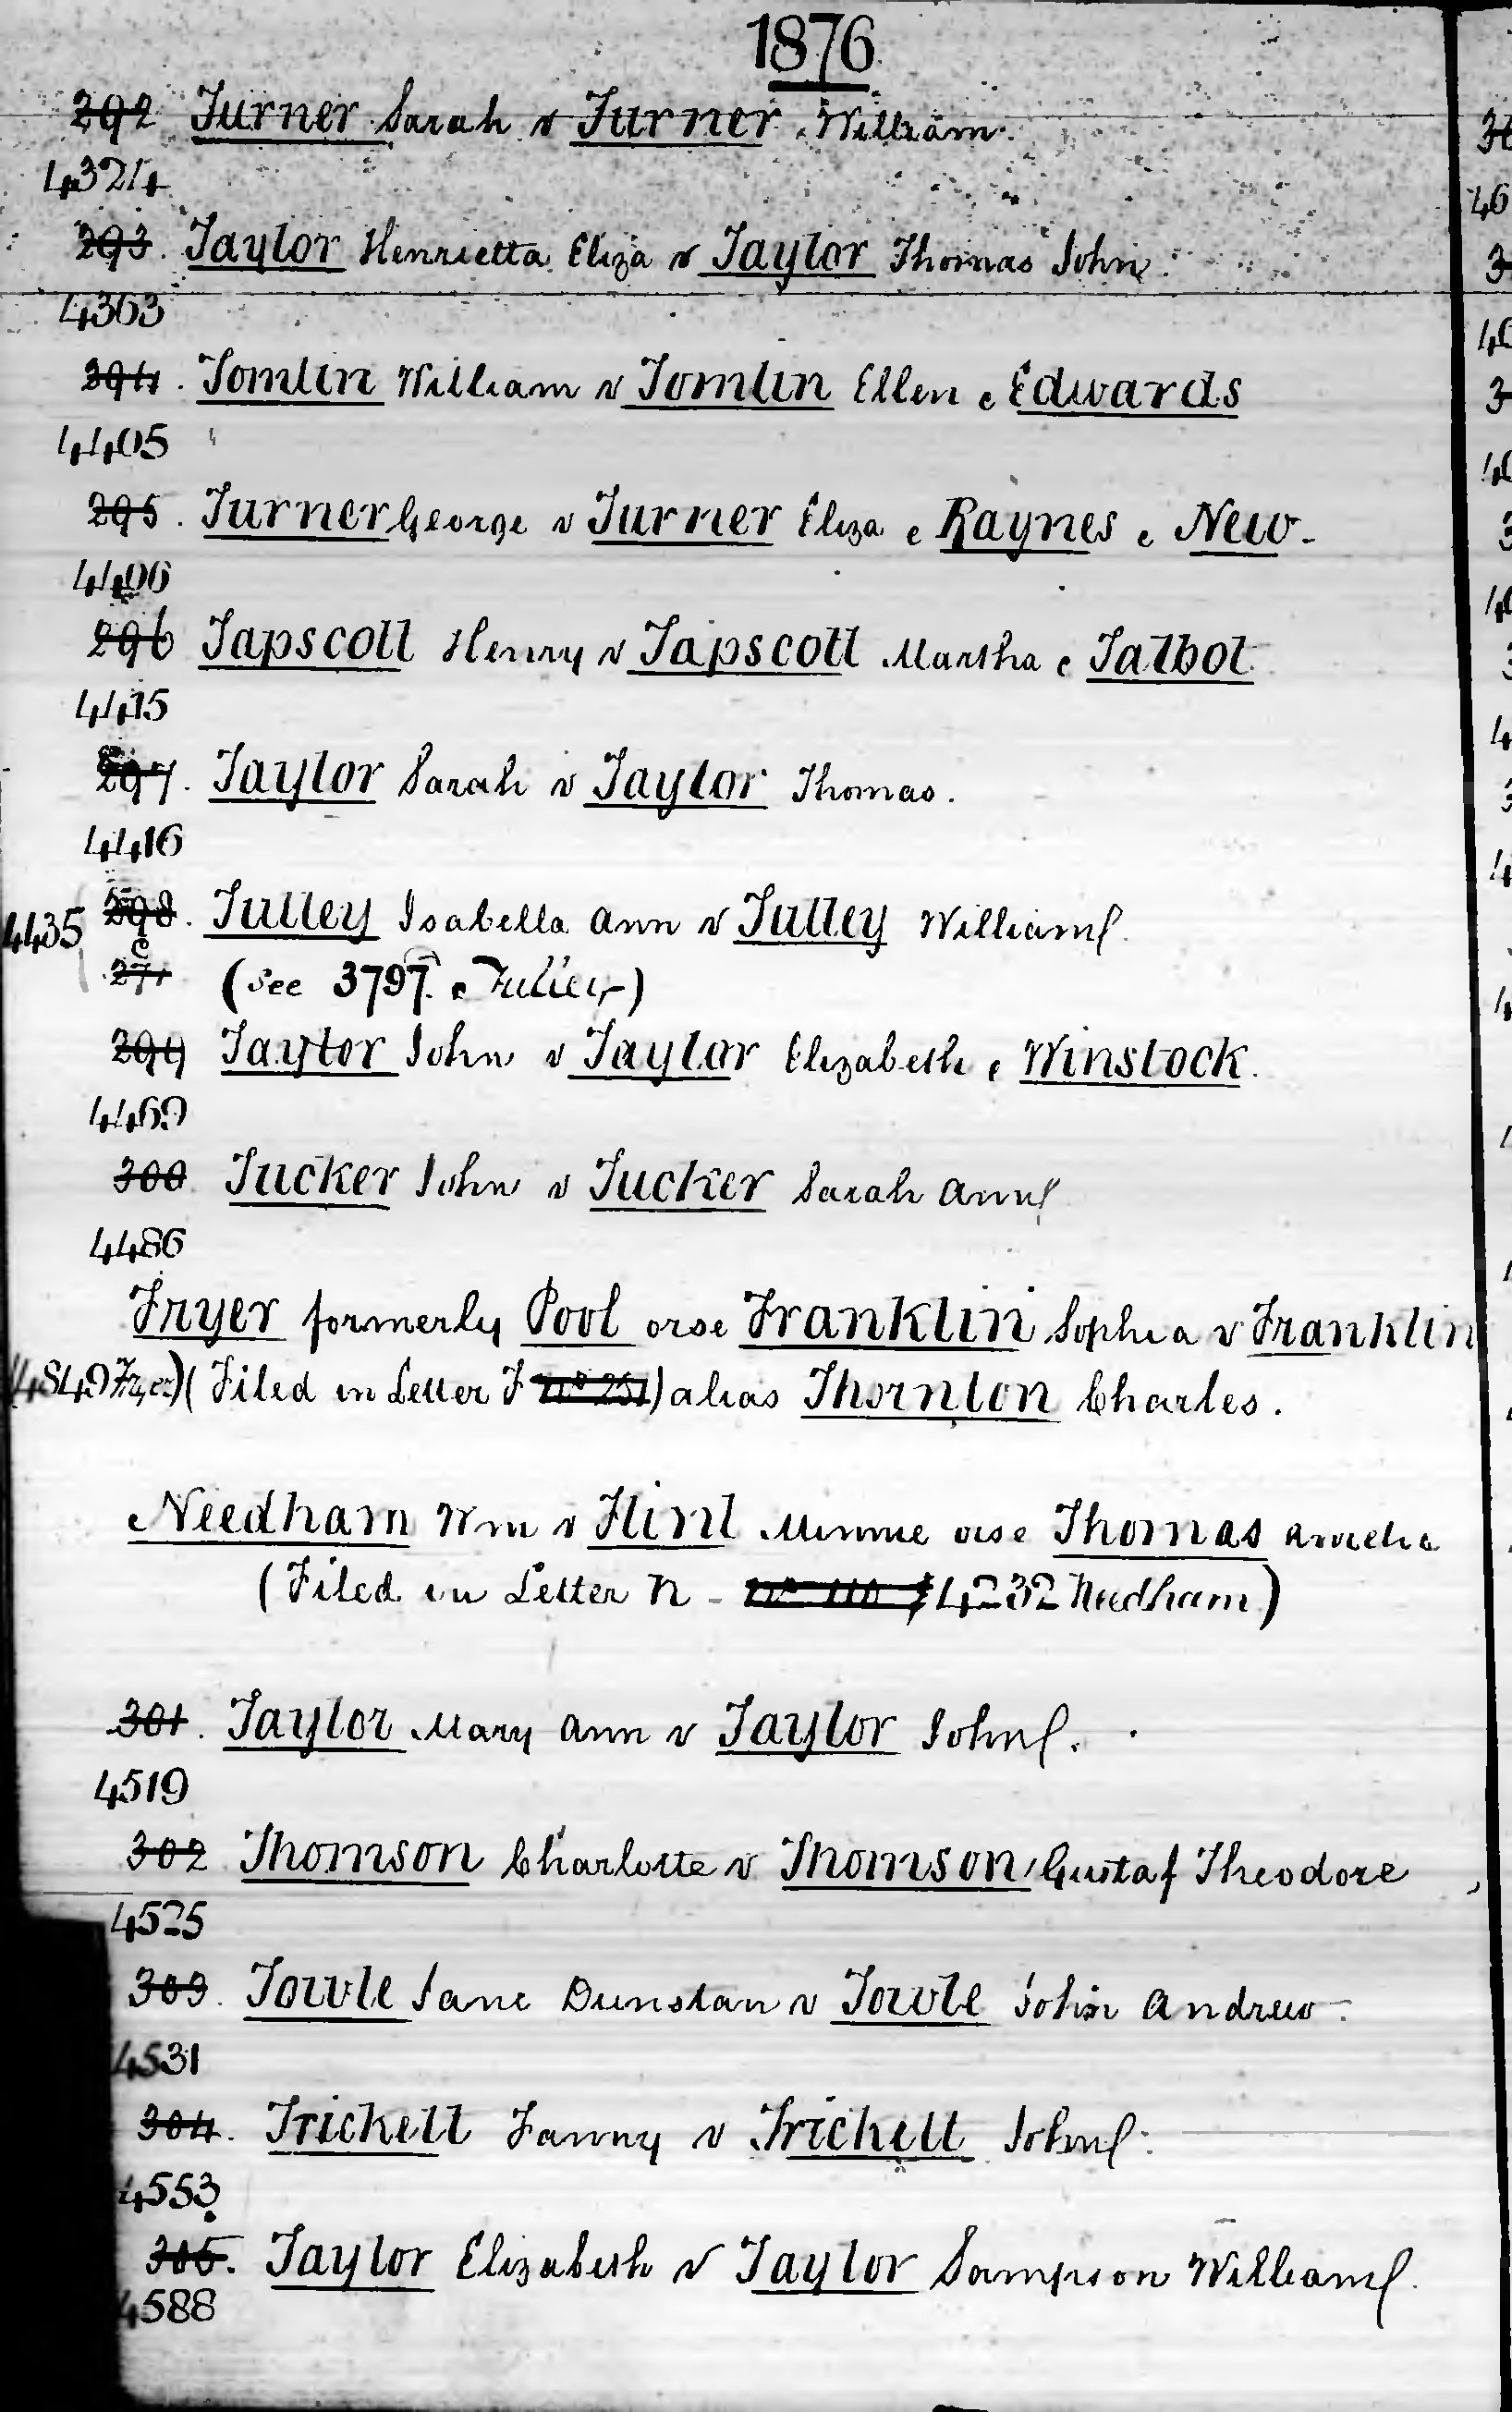 1876
292 Turner Sarah v Turner William.
4324
293. Taylor Henrietta Eliza v Taylor Thomas John.
4363
294. Tomlin William v Tomlin Ellen & Edwards
4405
295. Turner George v Turner Eliza & Raynes & New.
4406
296 Tapscott Henry v Tapscott Martha & Talbot
4415
297. Taylor Sarah v Taylor Thomas.
4416
4435 298. Tulley Isabella Ann v Tulley William
& 271 (See 3797 & Tulley)
299 Taylor John v Taylor Elizabeth & Winstock.
4469
300 Tucker John v Tucker Sarah Ann
4486
Fryer formerly Pool orse Franklin Sophia v Franklin
(4849 Fryer) (Filed in Letter F no 251) alias Thornton Charles.
Needham Wm v Flint Minnie orse Thomas Amelia
(Filed in Letter N - no 110 4232 Needham)
301. Taylor Mary Ann v Taylor John.
4519
302 Thomson Charlotte v Thomson Gustaf Theodore
4525
303. Towle Jane Dunstan v Towle John Andrew.
4531
304. Trickett Fanny v Trickett John.
4553
305. Taylor Elizabeth v Taylor Sampson William.
4588